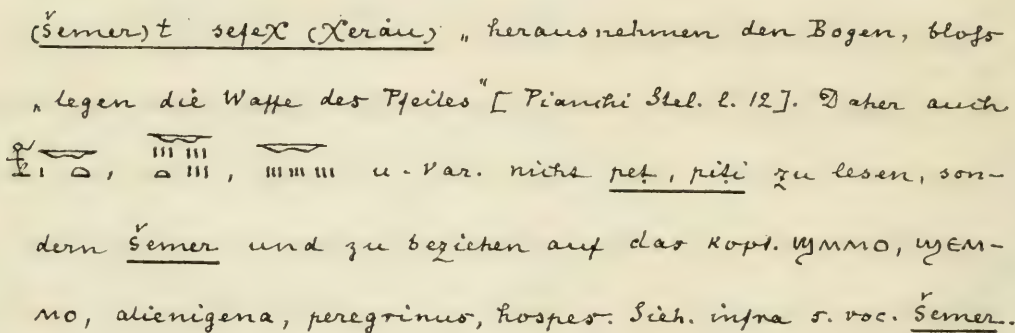 (Šemer)t sefeχ (χerāu) „herausnehmen den Bogen, bloß
„legen die Waffe des Pfeiles" [Pianchi Stel. l. 12]. Daher auch
, , u. Var. nicht peṭ, piṭi zu lesen, son-
dern Šemer und zu beziehen auf das Kopt. ϣⲙⲙⲟ, ϣⲉⲙ-
ⲙⲟ, alienigena, peregrinus, hospes. Sieh. infra s. voc. Šemer.